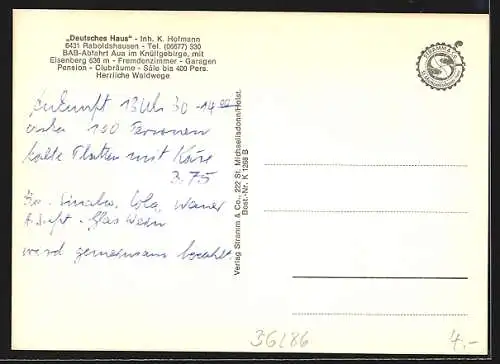 „Deutsches Haus" - Inh. K. Hofmann
6431 Raboldshausen - Tel. (06677) 330
BAB-Abfahrt Aua im Knüllgebirge, mit
Eisenberg 636 m - Fremdenzimmer - Garagen
Pension - Clubräume - Säle bis 400 Pers.
Herrliche Waldwege
Ankunft 13 Uhr 30 - 14 00
100 Personen
kalte Platten mit Käse
3.75
Cola,
Glas Wein
wird gemeinsam bezahlt
Verlag Stramm & Co., 222 St. Michaelisdonn/Holst.
Best.-Nr. K 1268 B
STRAMM & CO.
36286
4,-